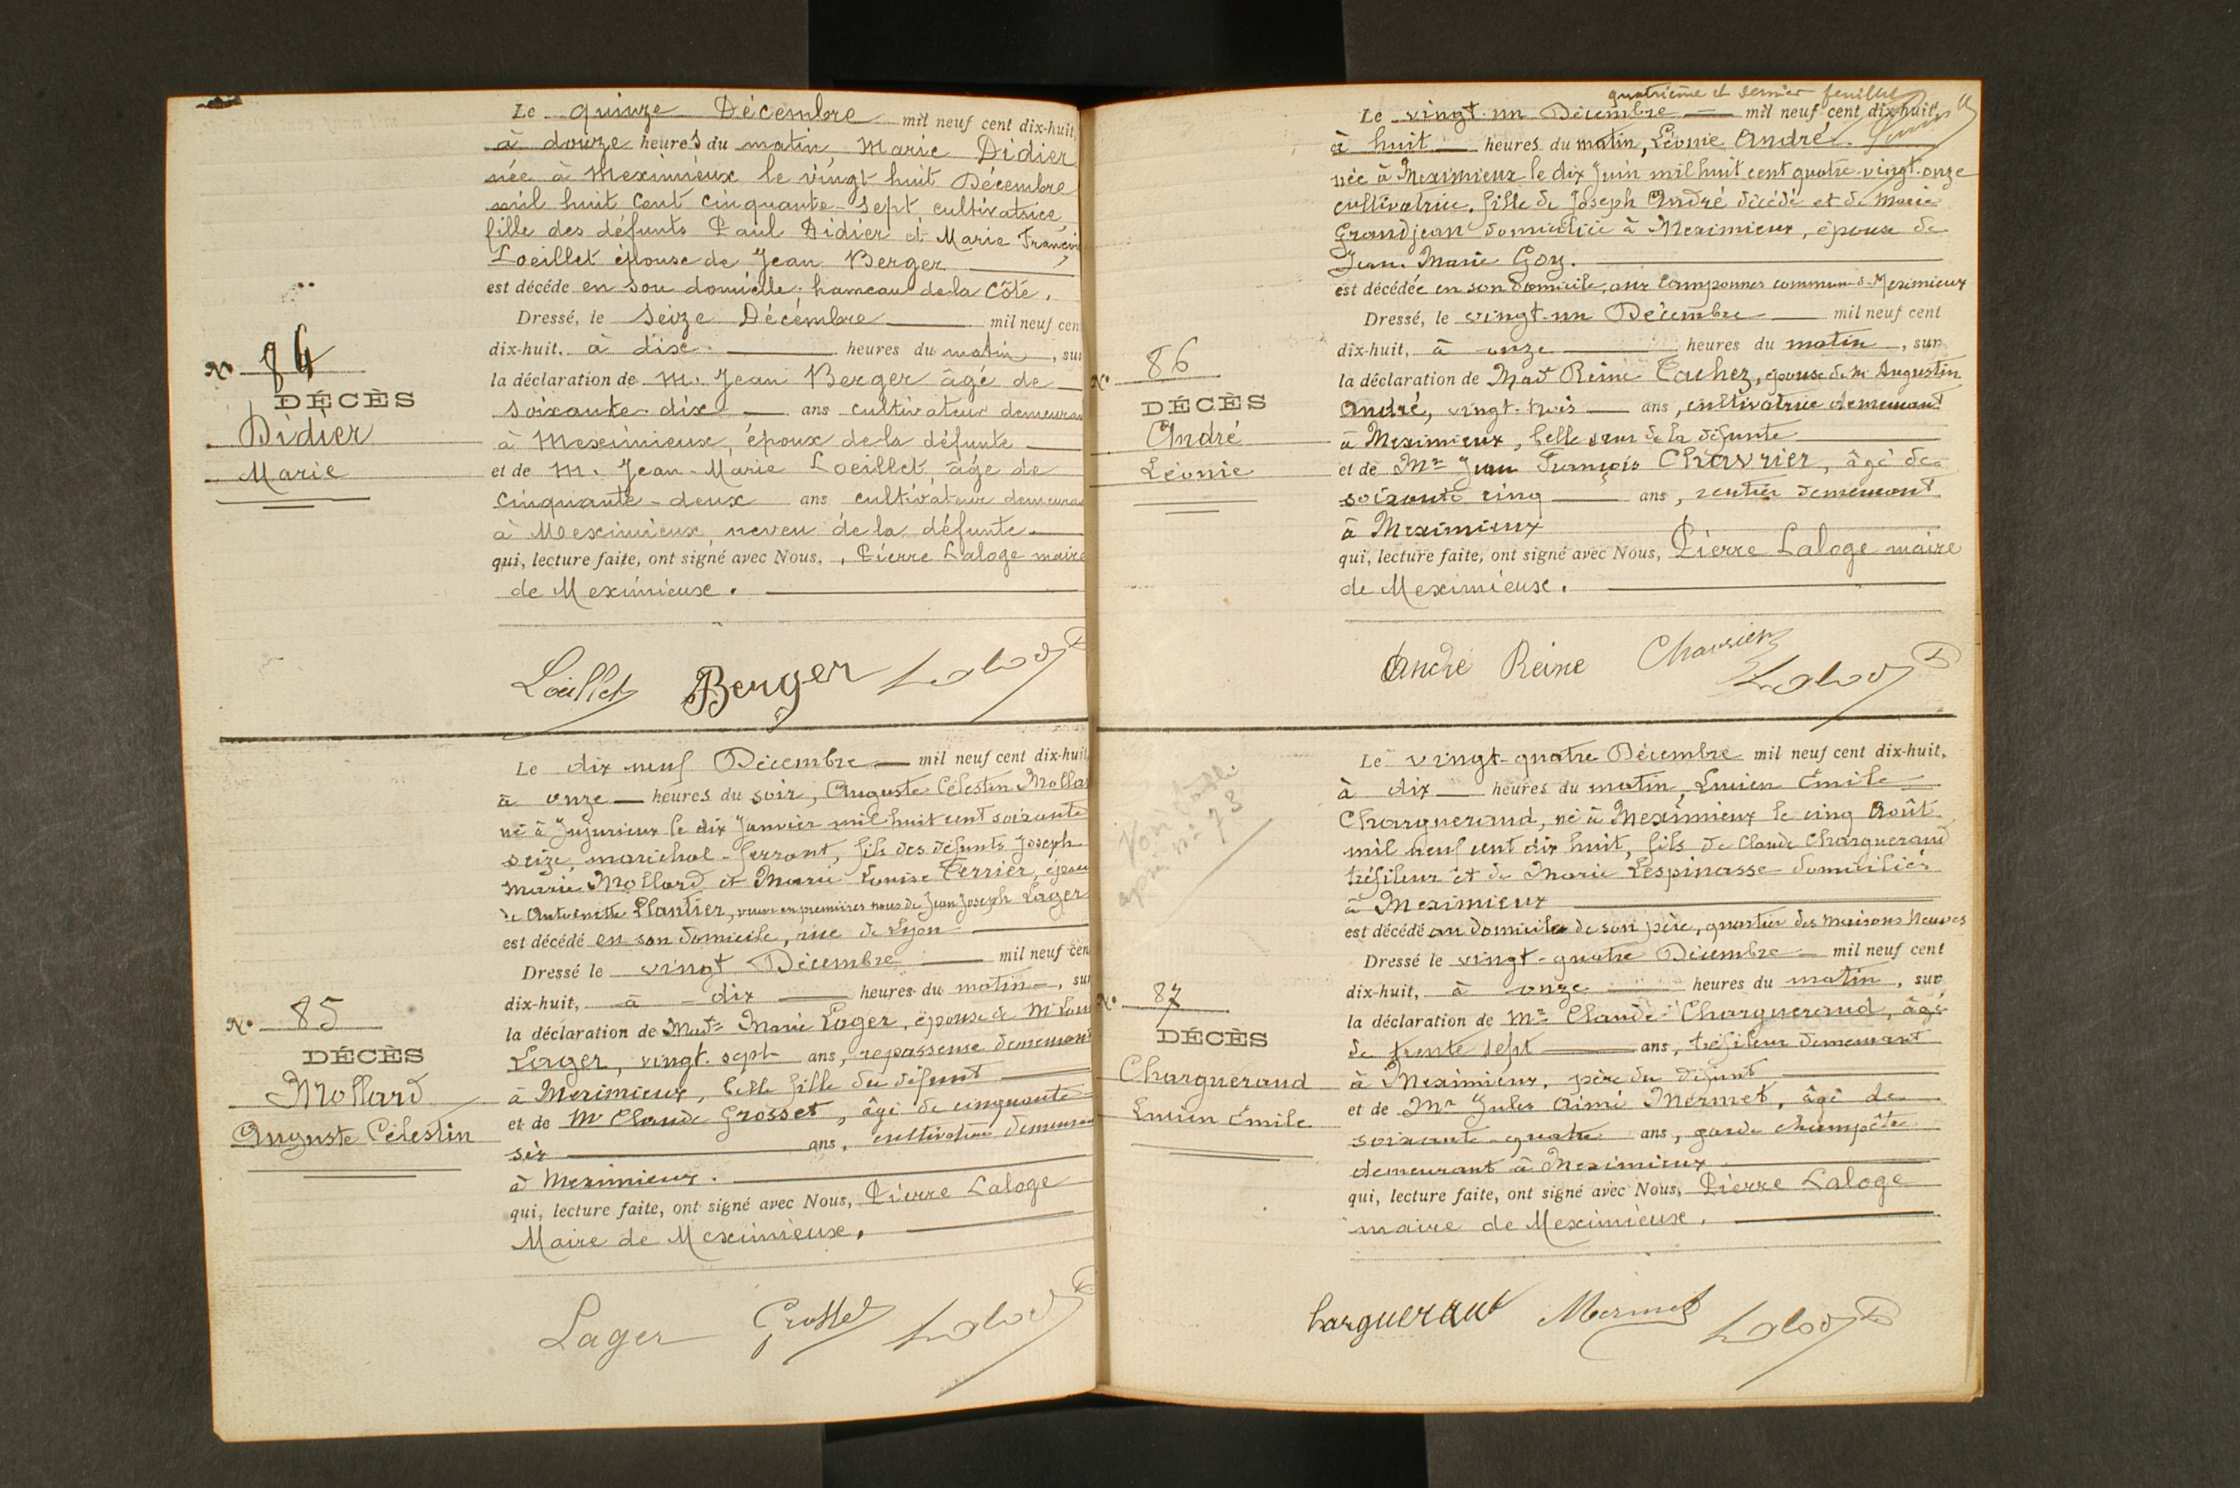 Le quinze Décembre mil neuf cent dix-huit,
à douze heures du matin Marie Didier
née à Meximieux le vingt huit Décembre
mil huit cent cinquante-sept, cultivatrice
fille des défunts Paul Didier et Marie
Loeillet épouse de Jean Berger
est décédé en son domicile hameau de la Côte.
Dressé, le Seize Décembre mil neuf cen
dix-huit, à dix heures du matin, sur
la déclaration de M. Jean Berger âgé de
soixante-dix ans cultivateur demeuran
à Meximieux, époux de la défunte
et de M. Jean-Marie Loeillet, âge de
cinquante-deux ans cultivateur demeuran
à Meximieux, neveu de la défunte
qui, lecture faite, ont signé avec Nous, Pierre Laloge maire
de Meximieux.
No 84
DÉCÈS
Didier
Marie
Loeillet Berger Laloge
Le dix neuf Décembre mil neuf cent dix-huit
à onze heures du soir, Auguste Célestin Mollar
né à Jujurieux le dix Janvier mil huit cent soixante
seize, maréchal-ferrant, fils des défunts Joseph
Marie Mollard et Marie Louise Terrier, époux
de Antoinette Plantier, veuve en premières noces de Jean Joseph Lager
est décédé en son domicile, rue de Lyon
Dressé le vingt Décembre mil neuf cen
dix-huit, à dix heures du matin, sur
la déclaration de Made Marie Lager, épouse de Mr
Lager, vingt-sept ans, repasseuse demeurant
à Meximieux, belle fille du défunt
et de Mr Claude Grosset, âgé de cinquante
six ans, cultivateur demeurant
à Meximieux.
qui, lecture faite, ont signé avec Nous, Pierre Laloge
Maire de Meximieux.
No 85
DÉCÈS
Mollard
Auguste Célestin
Lager Grosset Laloge
quatrième et dernier feuillet
Le vingt-un Décembre mil neuf cent dix-huit,
à huit heures du matin, Léonie André
née à Meximieux le dix Juin mil huit cent quatre-vingt-onze
cultivatrice, fille de Joseph André décédé et de Marie
Grandjean domiciliée à Meximieux, épouse de
Jean Marie Goy.
est décédée en son domicile, aux commune de Meximieux
Dressé, le vingt-un Décembre mil neuf cent
dix-huit, à onze heures du matin, sur
la déclaration de Made Reine Tachez, épouse de Mr Augustin
André, vingt-trois ans, cultivatrice demeurant
à Meximieux, belle sœur de la défunte
et de Mr Jean François Chavrier, âgé de
soixante cinq ans, rentier demeurant
à Meximieux
qui, lecture faite, ont signé avec Nous, Pierre Laloge maire
de Meximieux.
No 86
DÉCÈS
André
Léonie
André Reine Chavrier Laloge
Le vingt-quatre Décembre mil neuf cent dix-huit,
à dix heures du matin, Lucien Émile
Charguerand, né à Meximieux le cinq Août
mil neuf cent dix huit, fils de Claude Charguerand
tréfileur et de Marie Lespinasse domiciliés
à Meximieux
est décédé au domicile de son père, quartier des Maisons Neuves
Dressé le vingt-quatre Décembre mil neuf cent
dix-huit, à onze heures du matin, sur
la déclaration de Mr Claude Charguerand, âgé
de trente sept ans, tréfileur demeurant
à Meximieux, père du défunt
et de Mr Jules Aimé Mermet, âgé de
soixante-quatre ans, garde champête
demeurant à Meximieux
qui, lecture faite, ont signé avec Nous, Pierre Laloge
maire de Meximieux.
après no 73
No 87
DÉCÈS
Charguerand
Lucien Émile
harguerand Mermet Laloge